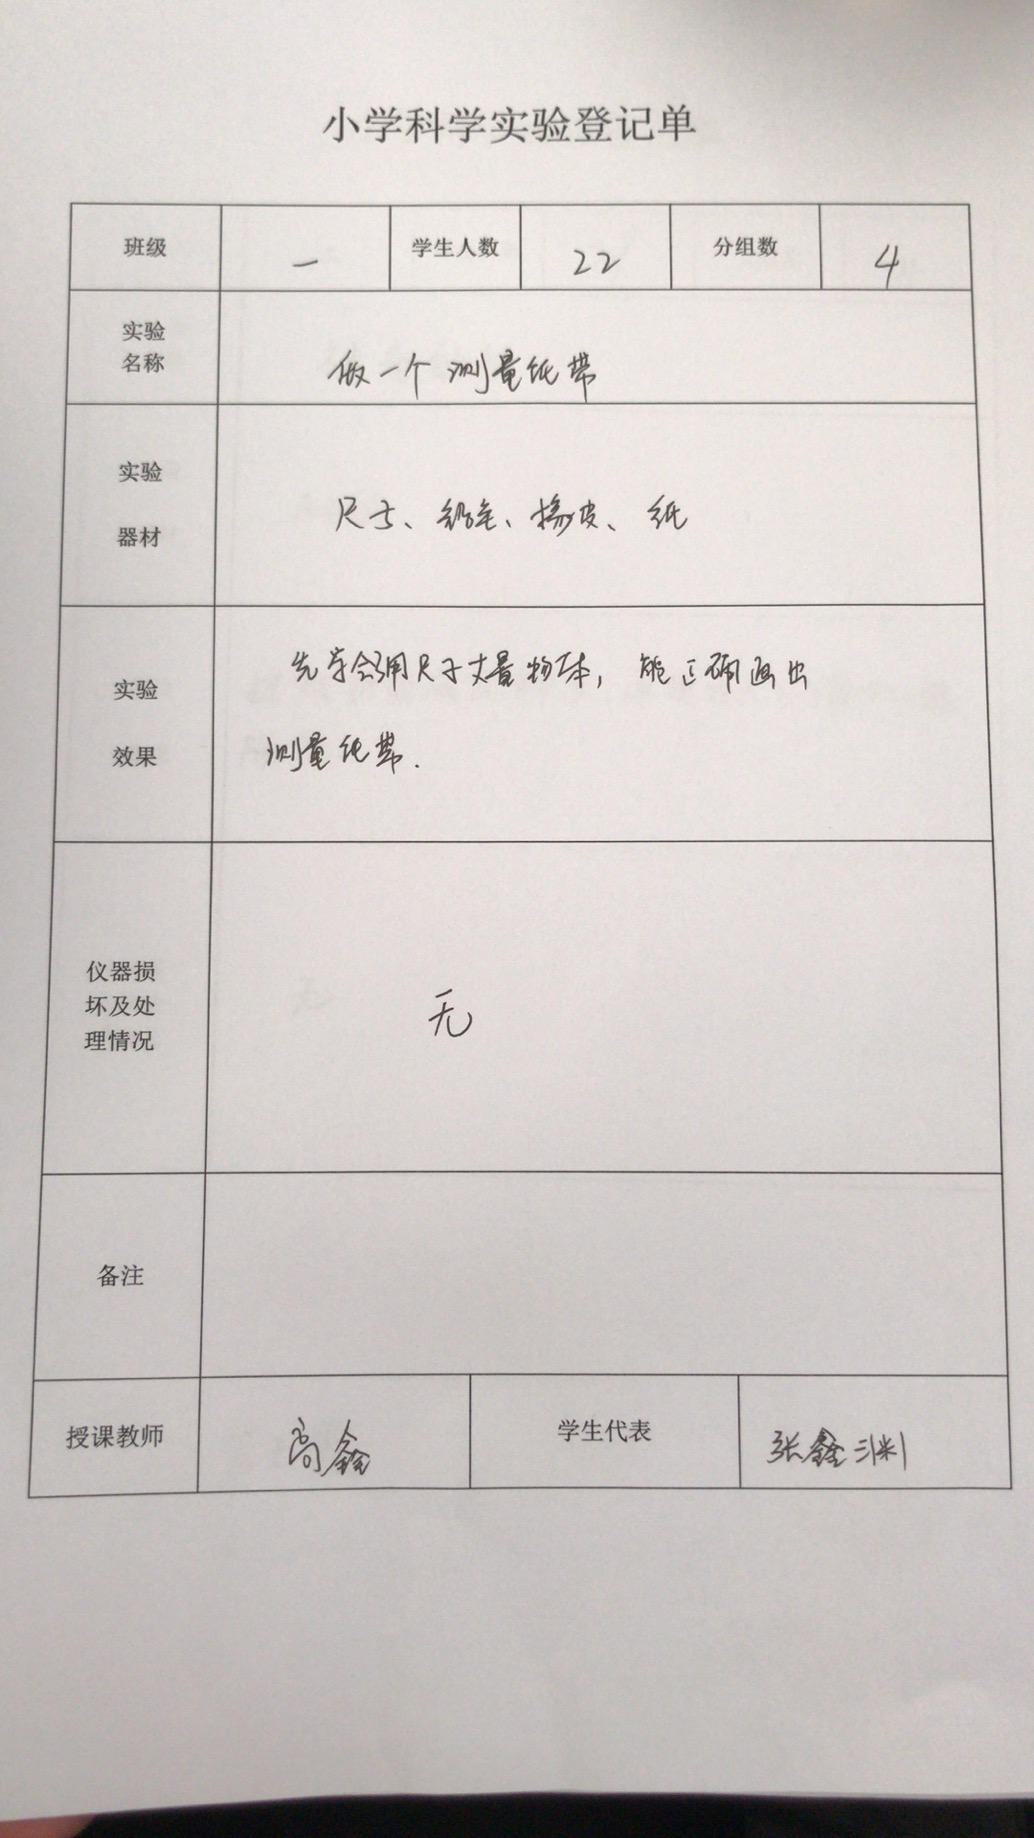 小学科学实验登记单
班级 一 学生人数 22 分组数 4
实验
名称
做一个测量纸带
实验
器材
尺子、铅笔、橡皮、纸
实验
效果
先学会用尺子丈量物体，能正确画出
测量纸带.
仪器损
坏及处
理情况
无
备注
授课教师 高鑫 学生代表 张鑫渊